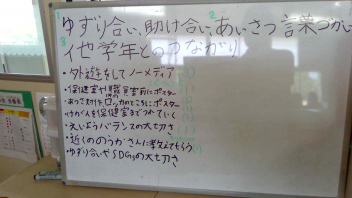 ゆずり合い、助け合い、あいさつ 言葉づかい
2
3
他学年とのつながり
・外遊をしてノーメディア
・保健室や職員室前にポスター
あっさつ付をロッカのところにポスター
・けがくを保健室までつれていく
・えいようバランスの大切さ
・近くののうかさんに考えてもらう
・ゆずり合いやSDGsの大切さ